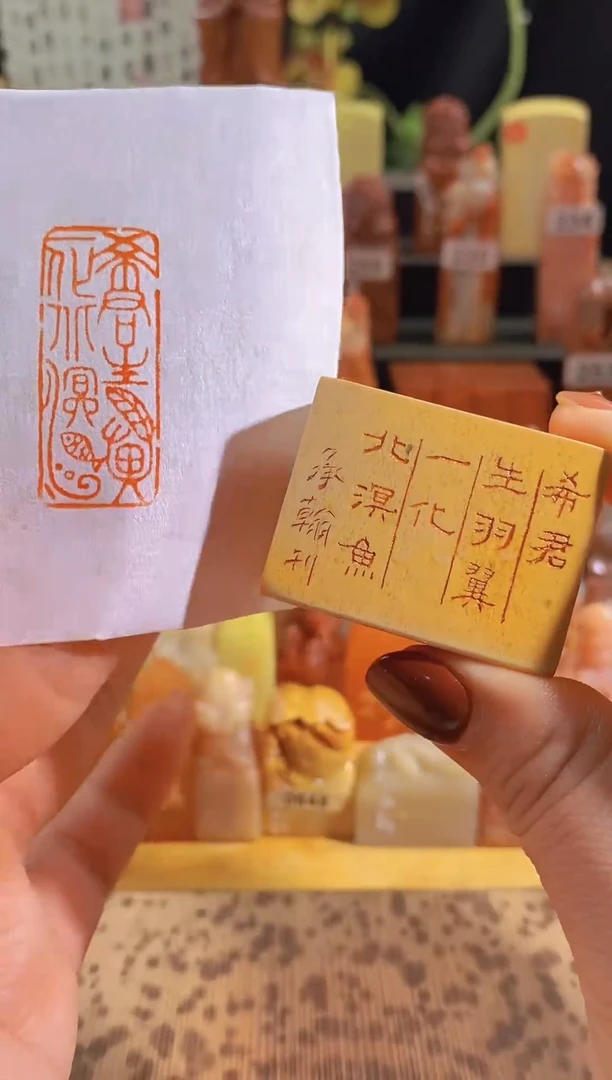 希君
生羽翼
一化
北溟魚
承翰刊
希君生羽翼
一化北溟魚